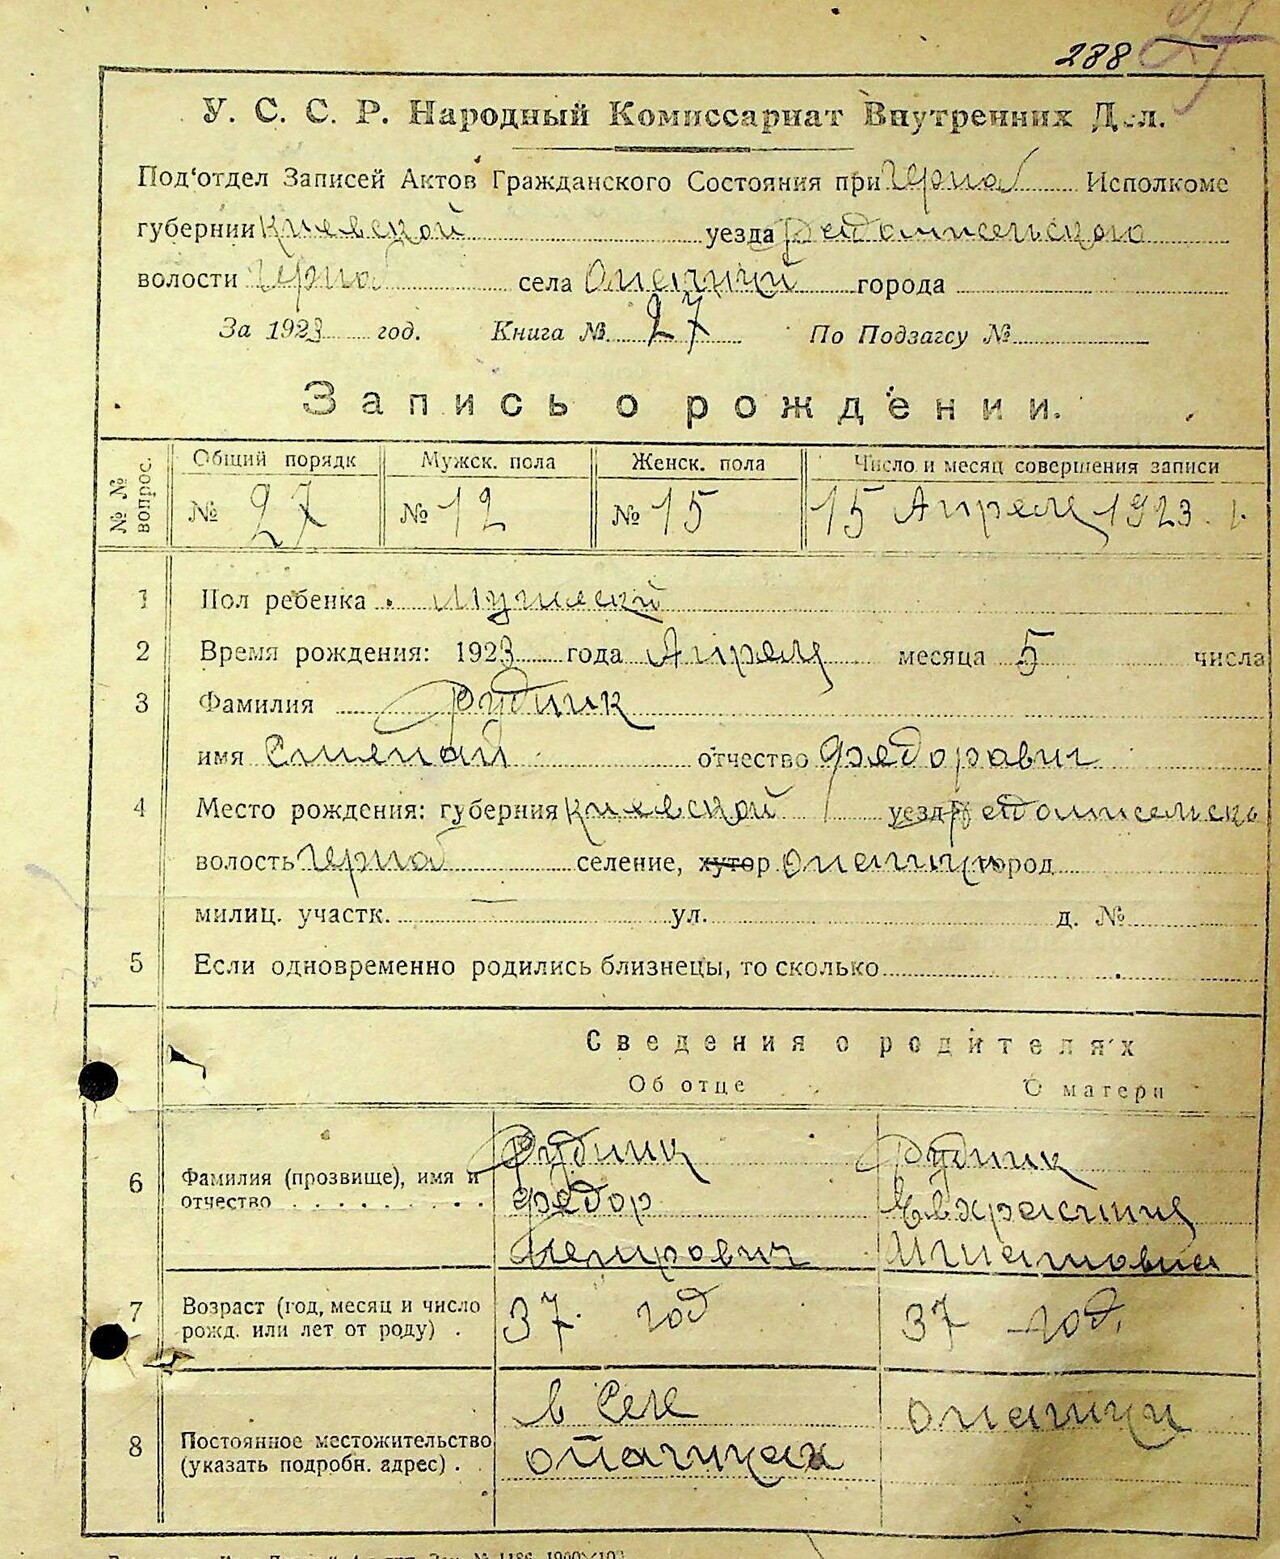 288 27
У. С. С. Р. Народный Комиссариат Внутренних Дел.
Под'отдел Записей Актов Гражданского Состояния при Черноб Исполкоме
губернии Киевской уезда Редомисельского
волости Черноб села Опачичи города
За 1923 год. Книга № 27 По Подзагсу №
Запись о рождении.
№ № вопрос. Общий порядк Мужск. пола Женск. пола Число и месяц совершения записи
№ 27 № 12 № 15 15 Апреля 1923 г.
1 Пол ребенка Мужеский
2 Время рождения: 1923 года Апреля месяца 5 числа
3 Фамилия Рудник
имя отчество Федоравич
4 Место рождения: губерния Киевской уезд Редомисельско
волость Черноб селение, хутор Опачичи город
милиц. участк. ул. д. №
5 Если одновременно родились близнецы, то сколько
Сведения о родителях
Об отце О матери
6 Фамилия (прозвище), имя и отчество Рудник Федор Петрович Рудник Евхрасиния Игнатовна
7 Возраст (год, месяц и число рожд. или лет от роду) 37 год 37 год.
8 Постоянное местожительство (указать подробн. адрес) в Селе Опачичах Опачичи